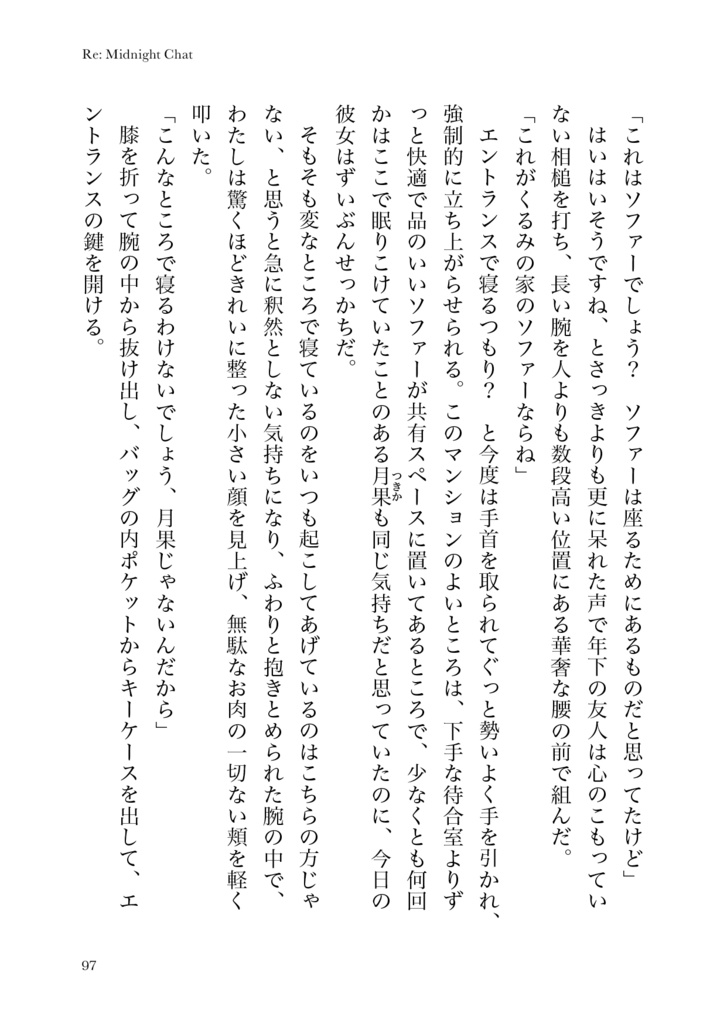 Re: Midnight Chat
「これはソファーでしょう？　ソファーは座るためにあるものだと思ってたけど」
　はいはいそうですね、とさっきよりも更に呆れた声で年下の友人は心のこもってい
ない相槌を打ち、長い腕を人よりも数段高い位置にある華奢な腰の前で組んだ。
「これがくるみの家のソファーならね」
　エントランスで寝るつもり？　と今度は手首を取られてぐっと勢いよく手を引かれ、
強制的に立ち上がらせられる。このマンションのよいところは、下手な待合室よりず
っと快適で品のいいソファーが共有スペースに置いてあるところで、少なくとも何回
かはここで眠りこけていたことのある月果つきかも同じ気持ちだと思っていたのに、今日の
彼女はずいぶんせっかちだ。
　そもそも変なところで寝ているのをいつも起こしてあげているのはこちらの方じゃ
ない、と思うと急に釈然としない気持ちになり、ふわりと抱きとめられた腕の中で、
わたしは驚くほどきれいに整った小さい顔を見上げ、無駄なお肉の一切ない頬を軽く
叩いた。
「こんなところで寝るわけないでしょう、月果じゃないんだから」
　膝を折って腕の中から抜け出し、バッグの内ポケットからキーケースを出して、エ
ントランスの鍵を開ける。
97